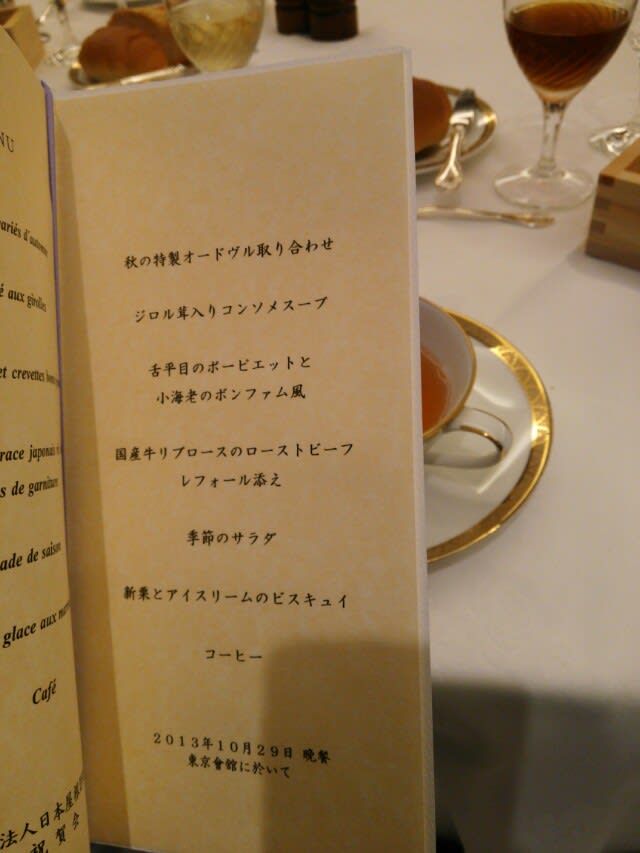 NU
variés d'automne
é aux girolles
et crevettes bonn
race japonais
s de garniture
ade de saison
glace aux
Café
法人日本屋
祝賀会
秋の特製オードヴル取り合わせ
ジロル茸入りコンソメスープ
舌平目のポーピエットと
小海老のボンファム風
国産牛リブロースのローストビーフ
レフォール添え
季節のサラダ
新栗とアイスリームのビスキュイ
コーヒー
2013年10月29日 晩餐
東京會館に於いて